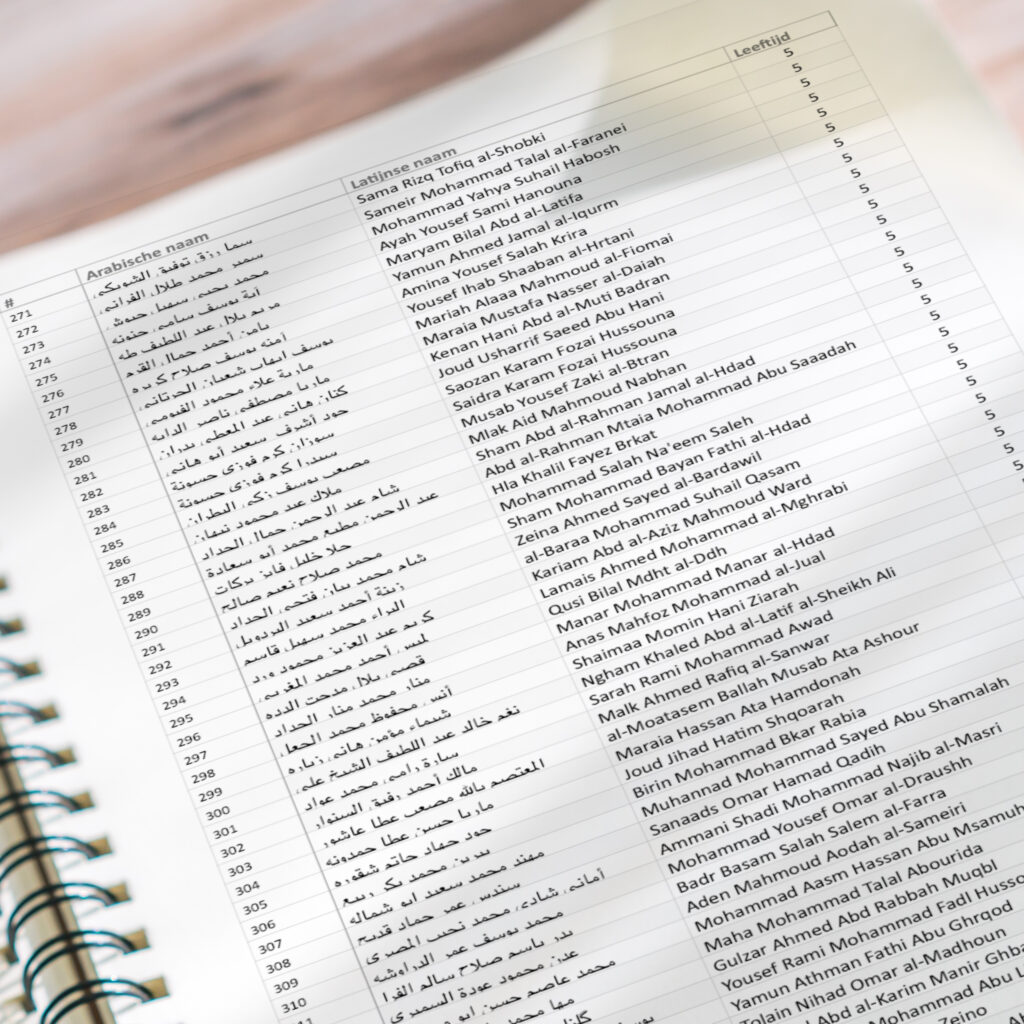 # Arabische naam Latijnse naam Leeftijd
271 سما رزق توفيق الشوبكي Sama Rizq Tofiq al-Shobki 5
272 سمير محمد طلال الفرانى Sameir Mohammad Talal al-Faranei 5
273 محمد يحيى سهيل حبوش Mohammad Yahya Suhail Habosh 5
274 آية يوسف سامي حنونه Ayah Yousef Sami Hanouna 5
275 مريم بلال عبد اللطيف طه Maryam Bilal Abd al-Latifa 5
276 يامن أحمد جمال القرم Yamun Ahmed Jamal al-Iqurm 5
277 أمنه يوسف صلاح كريره Amina Yousef Salah Krira 5
278 يوسف ايهاب شعبان الحرتاني Yousef Ihab Shaaban al-Hrtani 5
279 مارية علاء محمود الفيومي Mariah Alaaa Mahmoud al-Fiomai 5
280 ماريا مصطفى ناصر الدايه Maraia Mustafa Nasser al-Daiah 5
281 كنان هاني عبد المعطي بدران Kenan Hani Abd al-Muti Badran 5
282 جود أشرف سعيد أبو هاني Joud Usharrif Saeed Abu Hani 5
283 سوزان كرم فوزي حسونة Saozan Karam Fozai Hussouna 5
284 سيدرا كرم فوزي حسونة Saidra Karam Fozai Hussouna 5
285 مصعب يوسف زكي البطران Musab Yousef Zaki al-Btran 5
286 ملاك عيد محمود نبهان Mlak Aid Mahmoud Nabhan 5
287 شام عبد الرحمن جمال الحداد Sham Abd al-Rahman Jamal al-Hdad 5
288 عبد الرحمن مطيع محمد أبو سعادة Abd al-Rahman Mtaia Mohammad Abu Saaadah 5
289 حلا خليل فايز بركات Hla Khalil Fayez Brkat 5
290 محمد صلاح نعيم صالح Mohammad Salah Na'eem Saleh 5
291 شام محمد بيان فتحي الحداد Sham Mohammad Bayan Fathi al-Hdad 5
292 زينة أحمد سعيد البردويل Zeina Ahmed Sayed al-Bardawil 5
293 البراء محمد سهيل قاسم al-Baraa Mohammad Suhail Qasam 5
294 كريم عبد العزيز محمود ورد Kariam Abd al-Aziz Mahmoud Ward 5
295 لميس أحمد محمد المغربي Lamais Ahmed Mohammad al-Mghrabi 5
296 قصي بلال مدحت الدده Qusi Bilal Mdht al-Ddh
297 منار محمد منار الحداد Manar Mohammad Manar al-Hdad
298 أنس محفوظ محمد الجعل Anas Mahfoz Mohammad al-Jual
299 شيماء مؤمن هاني زياره Shaimaa Momin Hani Ziarah
300 نغم خالد عبد اللطيف الشيخ علي Ngham Khaled Abd al-Latif al-Sheikh Ali
301 سارة رامي محمد عواد Sarah Rami Mohammad Awad
302 مالك أحمد رفيق السنوار Malk Ahmed Rafiq al-Sanwar
303 المعتصم بالله مصعب عطا عاشور al-Moatasem Ballah Musab Ata Ashour
304 ماريا حسن عطا حمدونه Maraia Hassan Ata Hamdonah
305 جود جهاد حاتم شقوره Joud Jihad Hatim Shqoarah
306 بيرين محمد بكر ربيع Birin Mohammad Bkar Rabia
307 مهند محمد سعيد ابو شماله Muhannad Mohammad Sayed Abu Shamalah
308 سندس عمر حماد قديح Sanaads Omar Hamad Qadih
309 أماني شادي محمد نجيب المصري Ammani Shadi Mohammad Najib al-Masri
310 محمد يوسف عمر الدراوشه Mohammad Yousef Omar al-Draushh
بدر باسم صلاح سالم الفرا Badr Basam Salah Salem al-Farra
عدن محمود عودة السميري Aden Mahmoud Aodah al-Sameiri
محمد عاصم حسن ابو Mohammad Aasm Hassan Abu Msamuh
مها محمد Maha Mohammad Talal Abourida
Gulzar Ahmed Abd Rabbah Muqbl
Yousef Rami Mohammad Fadl
Yamun Athman Fathi Abu Ghrqod
Tolain Nihad Omar al-Madhoun
Abd al-Karim Manir
Mohammad Abu
Zeino